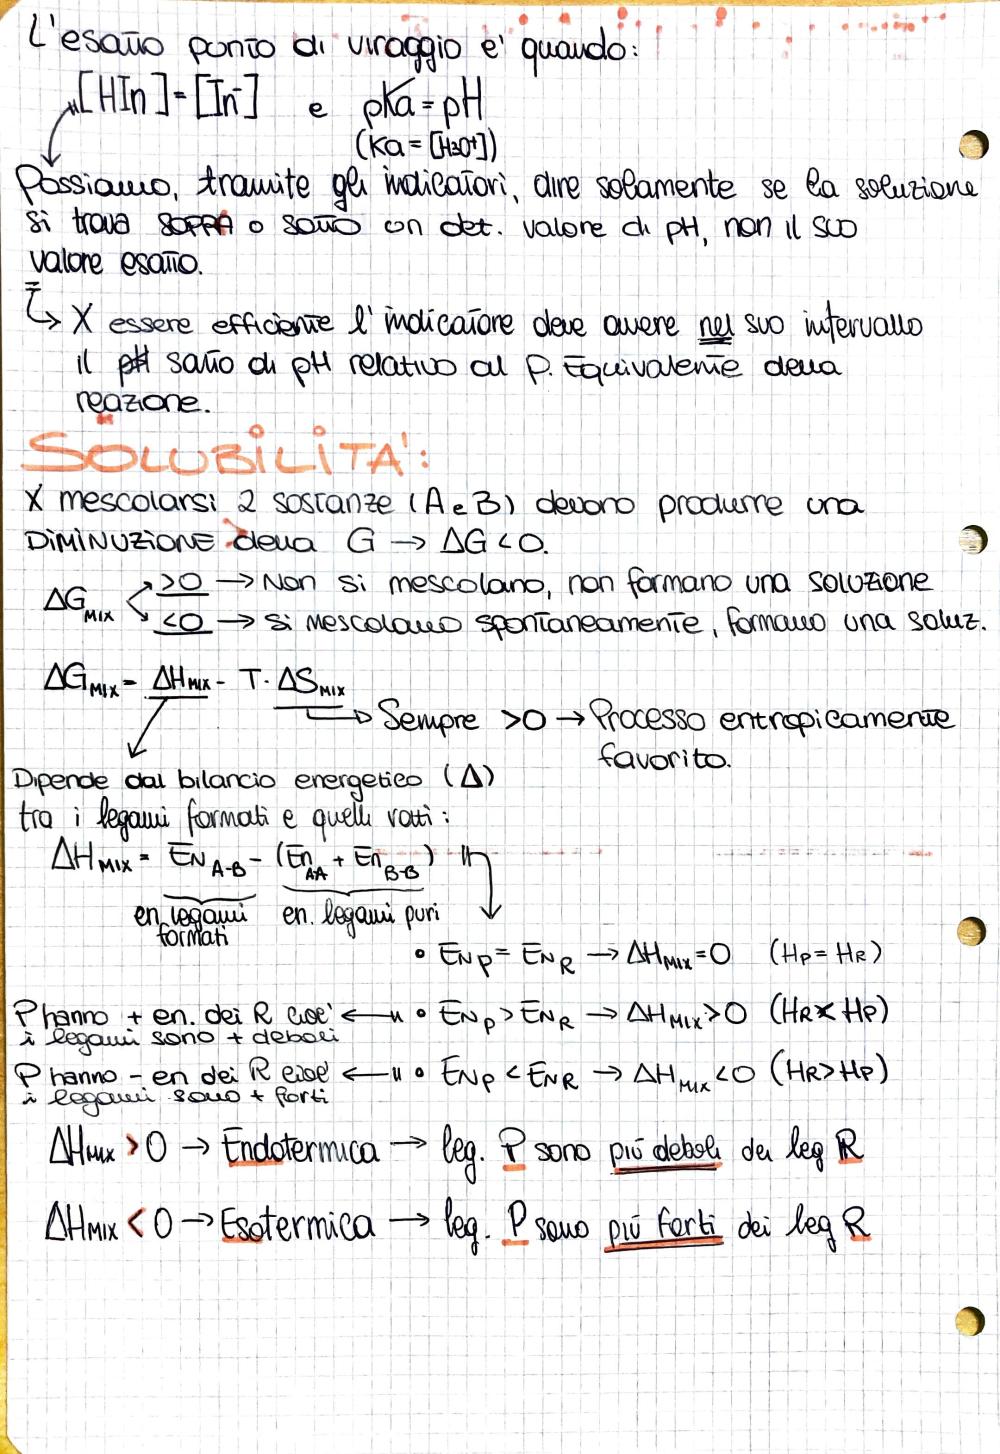 L'esatto punto di viraggio e' quando:
[HIn]=[In⁻] e pKa=pH
(Ka=[H3O⁺])
Possiamo, tramite gli indicatori, dire solamente se la soluzione
si trova SOPRA o sotto un det. valore di pH, non il suo
valore esatto.
↳ X essere efficiente l'indicatore deve avere nel suo intervallo
il salto di pH relativo al P. Equivalente della
reazione.
SOLUBILITA':
X mescolarsi 2 sostanze (A e B) devono produrre una
DIMINUZIONE della G → ΔG<0.
ΔG MIX >0 → Non si mescolano, non formano una soluzione
<0 → si mescolano spontaneamente, formano una soluz.
ΔG MIX = ΔH MIX - T·ΔS MIX
Sempre >0 → Processo entropicamente
favorito.
Dipende dal bilancio energetico (Δ)
tra i legami formati e quelli rotti:
ΔH MIX = EN A-B - (En AA + En B-B)
en. legami formati en. legami puri
• EN P = EN R → ΔH MIX = 0 (HP = HR)
P hanno + en. dei R cioe' ← • EN P > EN R → ΔH MIX >0 (HR < HP)
i legami sono + deboli
P hanno - en dei R cioe' ← • EN P < EN R → ΔH MIX <0 (HR > HP)
i legami sono + forti
ΔH MIX > 0 → Endotermica → leg. P sono più deboli dei leg R
ΔH MIX < 0 → Esotermica → leg. P sono più forti dei leg R